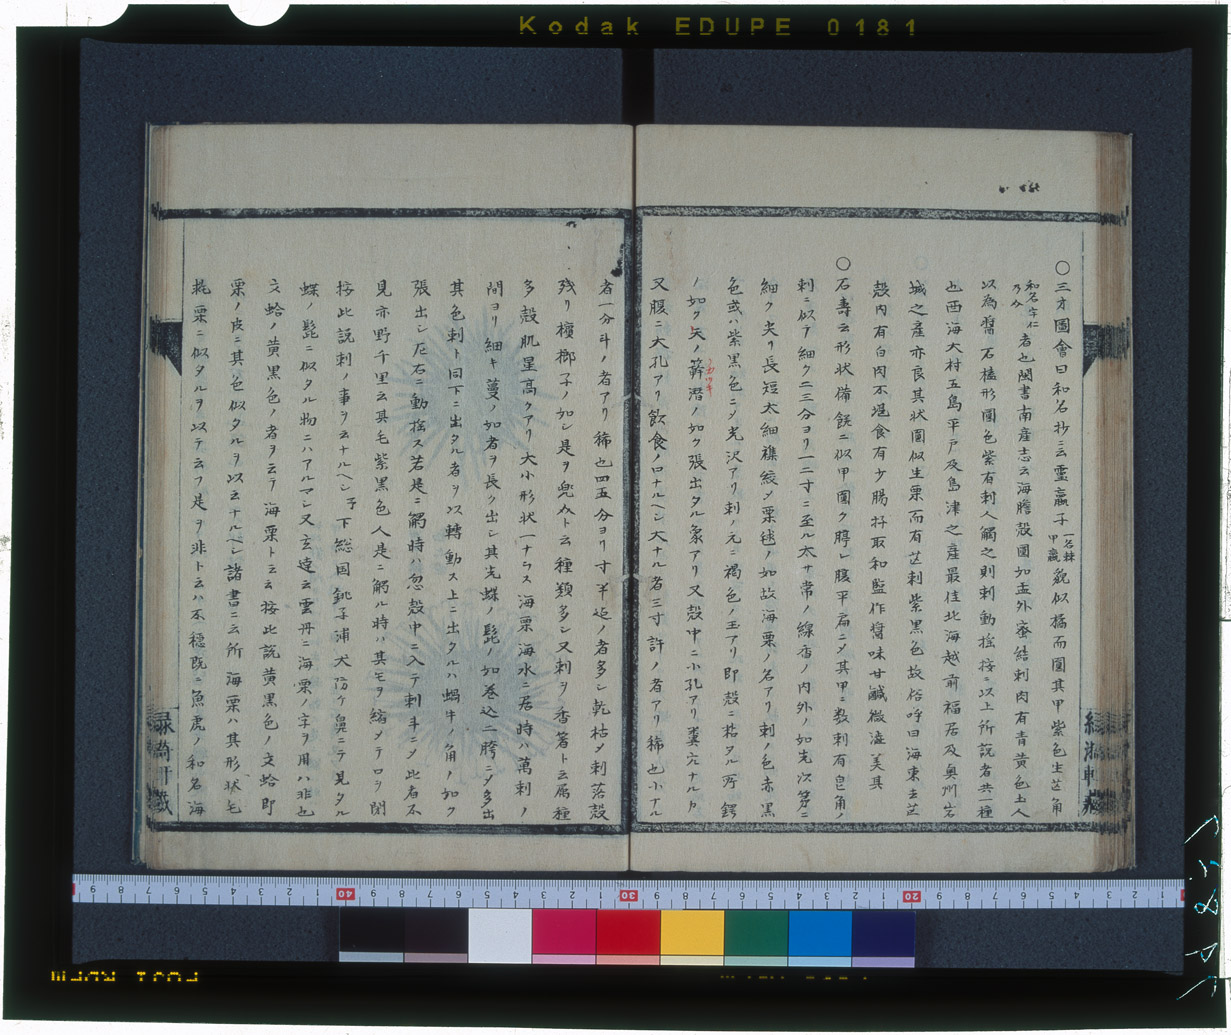 Kodak EDUPE 0181
○三才圖會曰和名抄ニ云靈蠃子 一名棘甲蠃 貌似橘而圓其甲紫色生芒角
和名宇仁乃分 者也閩書南産志云海膽殼圓如盂外蜜結刺肉有青黄色土人
以為醤 石榼形圓色紫有刺人觸之則刺動搖按ニ以上所説者共一種
也西海大村五島平戸及島津之産最佳北海越前福居及奥州岩
城之産亦良其状圓似生栗而有芒刺紫黒色故俗呼曰海東云芒
殼内有白肉不堪食有少腸拝取和塩作醤味甘鹹微澁美其
○石壽云形状備饌ニ似甲圓ク脝レ腹平扁ニメ其甲ニ数刺有皀角ノ
刺ニ似テ細ク二三分ヨリ一二寸ニ至ル太サ常ノ線香ノ内外ノ如先次第ニ
細ク尖リ長短太細襍絞メ栗毬ノ如故海栗ノ名アリ刺ノ色赤黒
色或ハ紫黒色ニメ光沢アリ刺ノ元ニ褐色ノ玉アリ即殼ニ粘タル所鍔
ノ如ク矢ノ簳潜ノ如ク張出タル象アリ又殼中ニ小孔アリ糞穴ナルカ
又腹ニ大孔アリ飲食ノ口ナルヘシ大ナル者三寸許ノ者アリ稀也小ナル
者一分斗ノ者アリ稀也四五分ヨリ寸半迄ノ者多シ乾枯メ刺落殼
残リ檳榔子ノ如シ是ヲ兜タト云種類多シ又刺ヲ香箸ト云属種
多殼肌星高クアリ大小形状一ナラス海栗海水ニ居時ハ萬刺ノ
間ヨリ細キ蔓ノ如者ヲ長ク出シ其先蝶ノ髭ノ如巻込一腾ニメ多出
其色刺ト同下ニ出タル者ヲ以轉動ス上ニ出タルハ蝸牛ノ角ノ如ク
張出シ左右ニ動揺ス若是ニ觸時ハ忽殼中ニ入テ刺斗ニメ此者不
見亦野千里云其毛紫黒色人是ニ觸ル時ハ其毛ヲ縮メテロヲ閉
按此説刺ノ事ヲ云ナルヘシ予下総国銚子浦犬防ケ鼻ニテ見タル
蝶ノ髭ニ似タル物ニハアルマシ又玄達云雲丹ニ海栗ノ字ヲ用ハ非也
文蛤ノ黄黒色ノ者ヲ云テ海栗ト云云按此説黄黒色ノ文蛤即
栗ノ皮ニ其色似タルヲ以云ナルヘシ諸書ニ云所海栗ハ其形状毛
毬栗ニ似タルヲ以テ云フ是ヲ非ト云ハ不穏既ニ魚虎ノ和名海